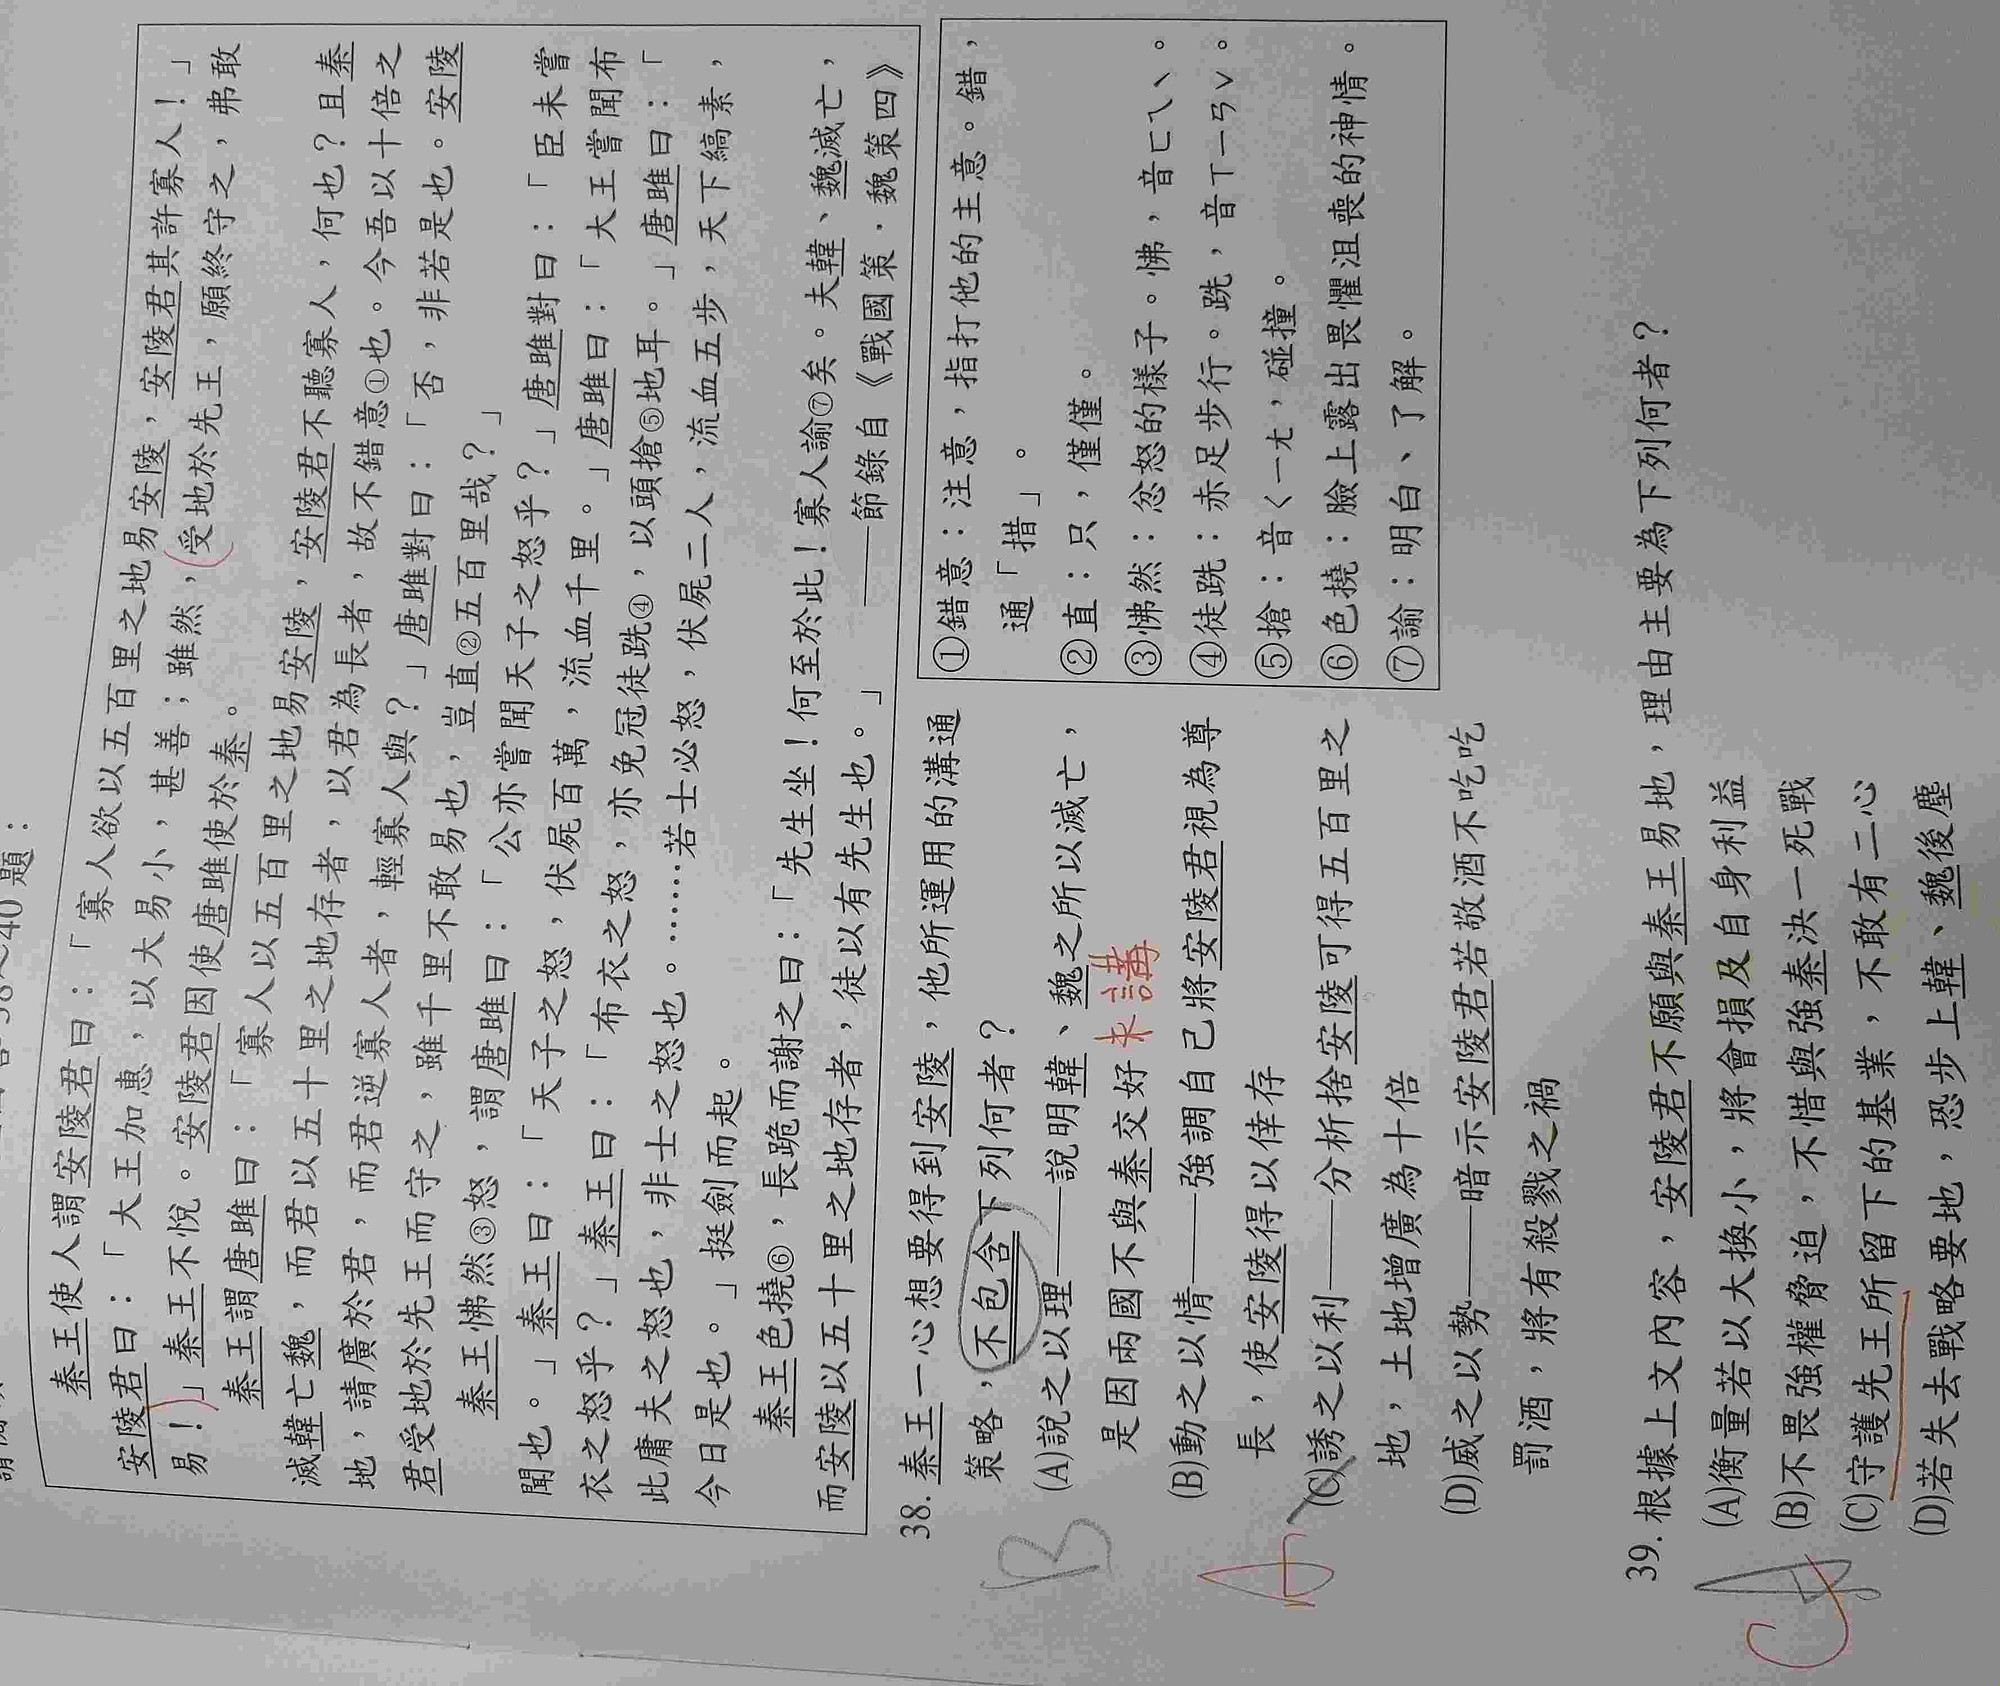 40題：
秦王使人謂安陵君曰：「寡人欲以五百里之地易安陵，安陵君其許寡人！」
安陵君曰：「大王加惠，以大易小，甚善；雖然，受地於先王，願終守之，弗敢
易！」秦王不悅。安陵君因使唐雎使於秦。
秦王謂唐雎曰：「寡人以五百里之地易安陵，安陵君不聽寡人，何也？且秦
滅韓亡魏，而君以五十里之地存者，以君為長者，故不錯意①也。今吾以十倍之
地，請廣於君，而君逆寡人者，輕寡人與？」唐雎對曰：「否，非若是也。安陵
君受地於先王而守之，雖千里不敢易也，豈直②五百里哉？」
秦王怫然③怒，謂唐雎曰：「公亦嘗聞天子之怒乎？」唐雎對曰：「臣未嘗
聞也。」秦王曰：「天子之怒，伏屍百萬，流血千里。」唐雎曰：「大王嘗聞布
衣之怒乎？」秦王曰：「布衣之怒，亦免冠徒跣④，以頭搶⑤地耳。」唐雎曰：「
此庸夫之怒也，非士之怒也。……若士必怒，伏屍二人，流血五步，天下縞素，
今日是也。」挺劍而起。
秦王色撓⑥，長跪而謝之曰：「先生坐！何至於此！寡人諭⑦矣。夫韓、魏滅亡，
而安陵以五十里之地存者，徒以有先生也。」
——節錄自《戰國策．魏策四》
①錯意：注意，指打他的主意。錯，
通「措」。
②直：只，僅僅。
③怫然：忿怒的樣子。怫，音ㄈㄟˋ。
④徒跣：赤足步行。跣，音ㄒㄧㄢˇ。
⑤搶：音ㄑㄧㄤ，碰撞。
⑥色撓：臉上露出畏懼沮喪的神情。
⑦諭：明白、了解。
38. 秦王一心想要得到安陵，他所運用的溝通
策略，不包含下列何者？
(A)說之以理——說明韓、魏之所以滅亡，
是因兩國不與秦交好 未講
(B)動之以情——強調自己將安陵君視為尊
長，使安陵得以倖存
(C)誘之以利——分析捨安陵可得五百里之
地，土地增廣為十倍
(D)威之以勢——暗示安陵君若敬酒不吃吃
罰酒，將有殺戮之禍
B
A
39. 根據上文內容，安陵君不願與秦王易地，理由主要為下列何者？
(A)衡量若以大換小，將會損及自身利益
(B)不畏強權脅迫，不惜與強秦決一死戰
(C)守護先王所留下的基業，不敢有二心
(D)若失去戰略要地，恐步上韓、魏後塵
A
C